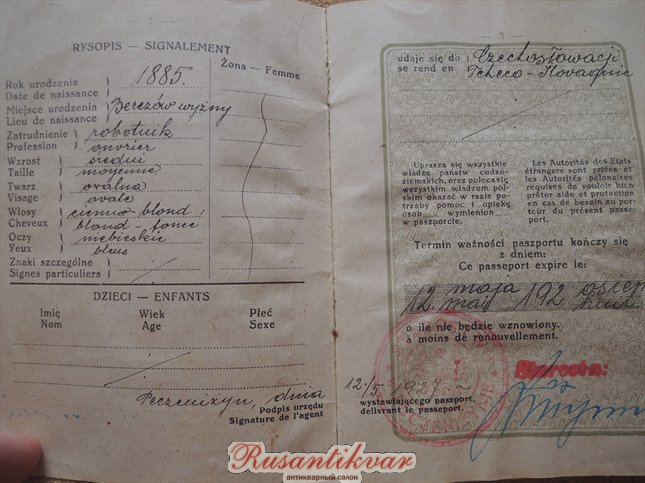 RYSOPIS — SIGNALEMENT
Żona — Femme
Rok urodzenia
Date de naissance
1885.
Miejsce urodzenia
Lieu de naissance
Berezów wyżny
Zatrudnienie
Profession
robotnik
ouvrier
Wzrost
Taille
średni
moyenne
Twarz
Visage
owalna
ovale
Włosy
Cheveux
ciemno-blond,
blond-fonce
Oczy
Yeux
niebieskie
bleus
Znaki szczególne
Signes particuliers
DZIECI — ENFANTS
Imię
Nom
Wiek
Age
Płeć
Sexe
Peczeniżyn, dnia
Podpis urzędu
Signature de l'agent
— 3 —
udaje się do
se rend en
Czechosłowacji
Tcheco-Slovaquie
Uprasza się wszystkie
władze państw cudzo-
ziemskich, oraz poleca się
wszystkim władzom pol-
skim okazać w razie po-
trzeby pomoc i opiekę
osobom wymienion
w paszporcie.
Les Autorités des Etats
étrangers sont priées et
les Autorités polonaises
requises de vouloir bien
prêter aide et protection
en cas de besoin au por-
teur du présent passe-
port.
Termin ważności paszportu kończy się
z dniem:
Ce passeport expire le:
12 maja 192 osiem
12 mai huit
o ile nie będzie wznowiony.
à moins de renouvellement.
12/5 1927
wystawiającego paszport.
delivrant le passeport.
Starosta:
Rusantikvar
антикварный салон